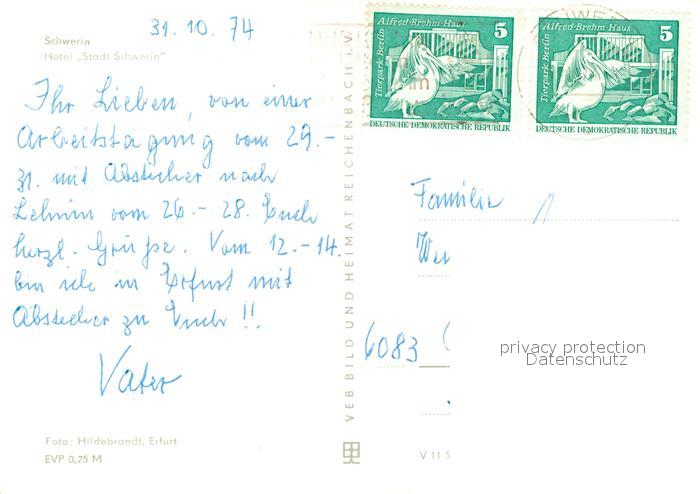 31. 10. 74
Schwerin
Hotel „Stadt Schwerin"
Ihr Lieben, von einer
Arbeitstagung vom 29.-
31. mit Abstecher nach
Lehnin vom 26.- 28. Euch
herzl. Grüße. Vom 12.-14.
bin ich in Erfurt mit
Abstecher zu Euch !!
Vater
Foto: Hildebrandt, Erfurt
EVP 0,25 M
VEB BILD UND HEIMAT REICHENBACH i. V.
Alfred-Brehm-Haus 5
Tierpark Berlin
DEUTSCHE DEMOKRATISCHE REPUBLIK
Alfred-Brehm-Haus 5
Tierpark Berlin
DEUTSCHE DEMOKRATISCHE REPUBLIK
Familie
6083
privacy protection
Datenschutz
V 11 5